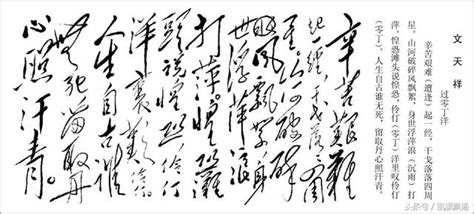 文天祥
过零丁洋
辛苦艰难（遭逢）起一经，干戈落落四周
星。山河破碎风飘絮，身世浮萍浪（沉雨）打
萍。惶恐滩头说惶恐，伶仃（零丁）洋里叹伶仃
（零丁）。人生自古谁无死，留取丹心照汗青。
辛苦艱難
起一經干戈落落四周
星山河破碎
风飘絮身
世浮萍浪
打萍惶恐灘
頭說惶恐伶仃
洋裏歎伶仃
人生自古誰
無死留取丹
心照汗青
头条号